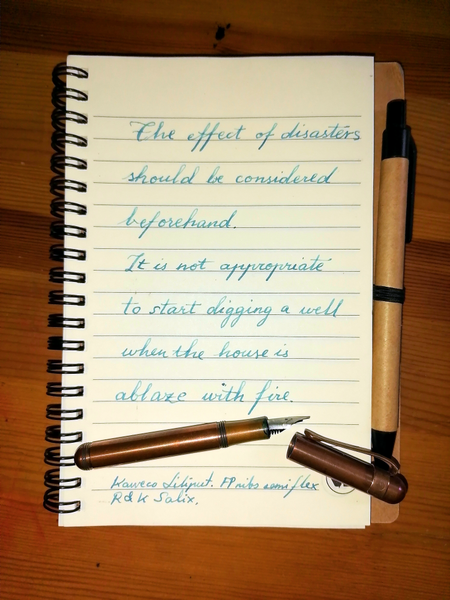 The effect of disasters
should be considered
beforehand.
It is not appropriate
to start digging a well
when the house is
ablaze with fire.
Kaweco Liliput. FPnibs semiflex
R&K Salix.